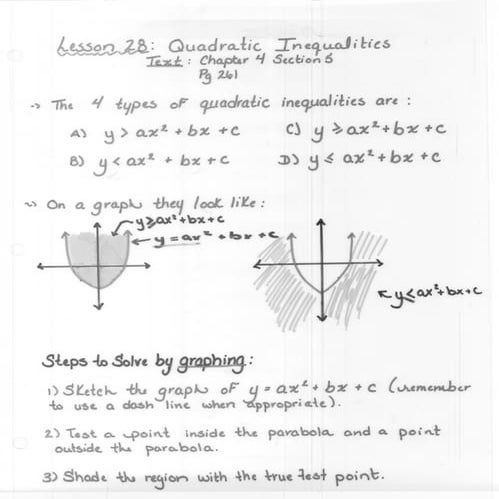 Lesson 28: Quadratic Inequalities
Text: Chapter 4 Section 5
Pg 261
→ The 4 types of quadratic inequalities are:
A) y > ax² + bx + c C) y ≥ ax² + bx + c
B) y < ax² + bx + c D) y ≤ ax² + bx + c
→ On a graph they look like:
y ≥ ax² + bx + c
y = ax² + bx + c
y ≤ ax² + bx + c
Steps to Solve by graphing:
1) Sketch the graph of y = ax² + bx + c (remember
to use a dash line when appropriate).
2) Test a point inside the parabola and a point
outside the parabola.
3) Shade the region with the true test point.